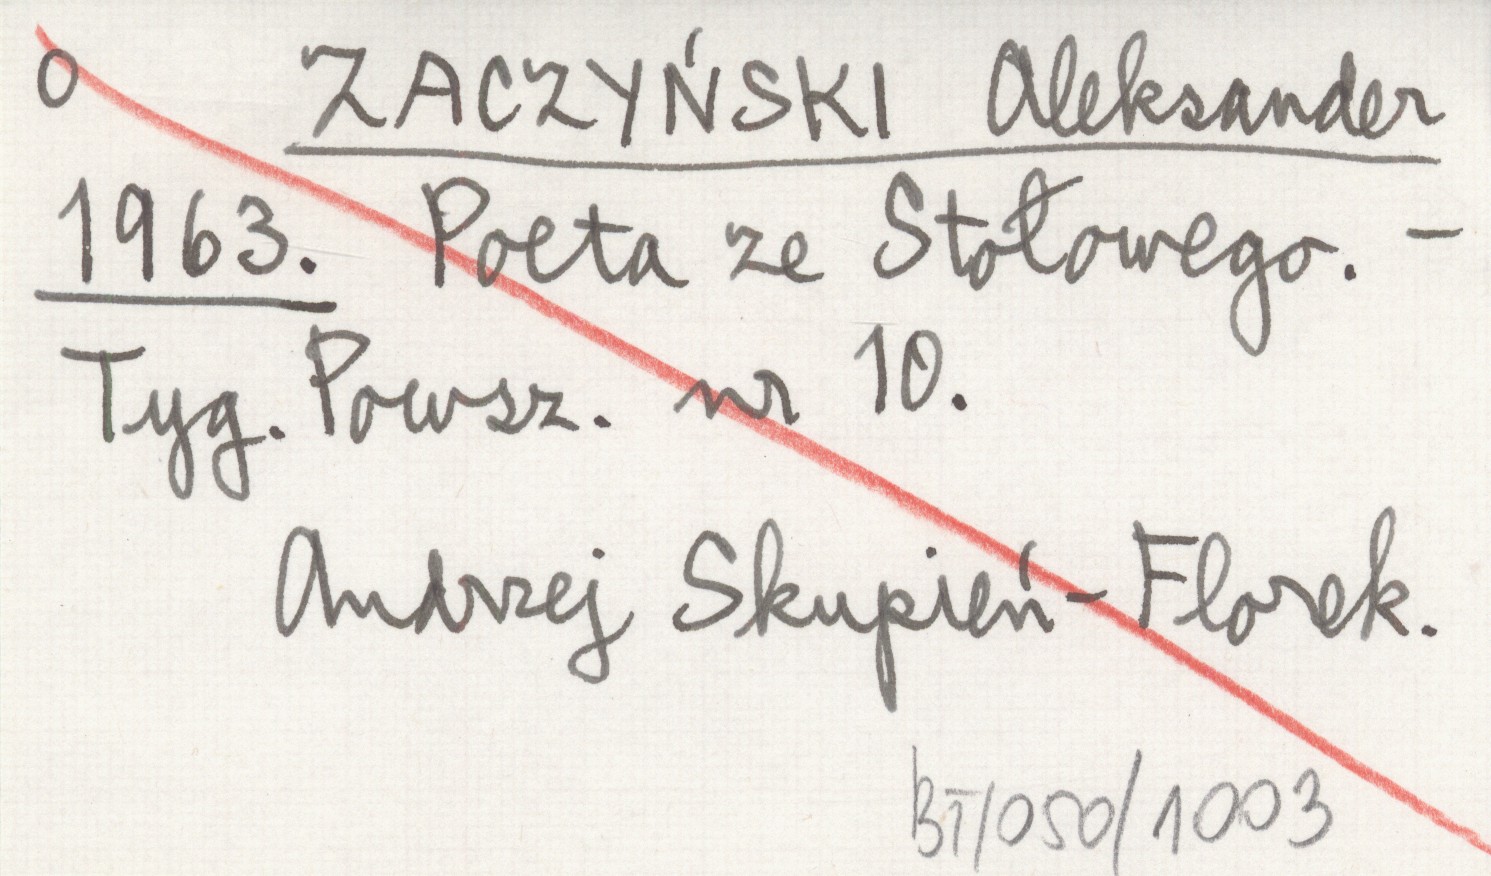 o ZACZYŃSKI Aleksander
1963. Poeta ze Stołowego. -
Tyg. Powsz. nr 10.
Andrzej Skupień-Florek.
BT/050/1003